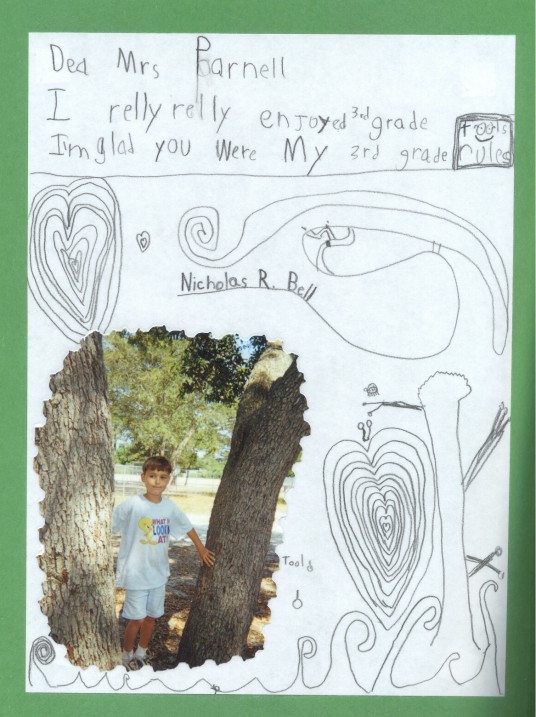 Dea Mrs Parnell
I relly relly enjoyed 3rd grade
I'm glad you were My 3rd grade
tools
ruled
Nicholas R. Bell
WHAT
LOOKIN
AT!
Tools